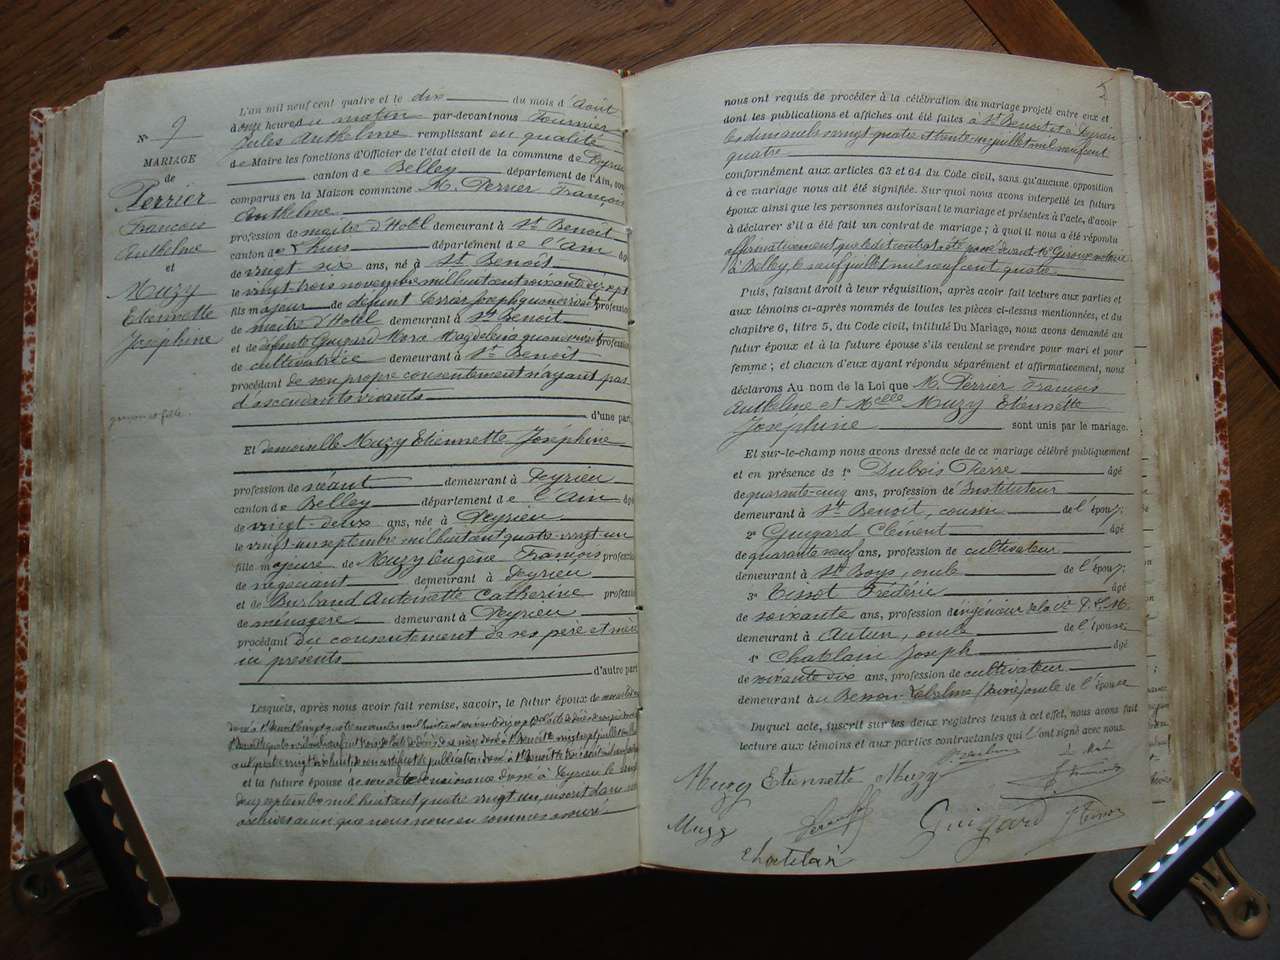 N° 9
MARIAGE
de
Perrier
François
Anthelme
et
Muzy
Etiennette
Joséphine
garçon et fille
L'an mil neuf cent quatre et le dix du mois d'Août
à onze heures du matin par-devant nous Fournier
Jules Anthelme remplissant en qualité
de Maire les fonctions d'Officier de l'état civil de la commune de Peyrieu
canton de Belley département de l'Ain,
comparus en la Maison commune M. Perrier François
Anthelme
profession de maitre d'Hotel demeurant à St Benoit
canton de Lhuis département de l'Ain âgé
de vingt six ans, né à St Benoit
le vingt trois novembre mil huit cent soixante dix sept
fils majeur de défunt Perrier Joseph quand vivait profession
de maitre d'Hotel demeurant à St Benoit
et de défunte Guigard Marie Magdeleine quand vivait profession
de cultivatrice demeurant à St Benoit
procédant de son propre consentement n'ayant pas
d'ascendants vivants
d'une part
Et demoiselle Muzy Etiennette Joséphine
profession de néant demeurant à Peyrieu
canton de Belley département de l'Ain âgé
de vingt-deux ans, née à Peyrieu
le vingt-un septembre mil huit cent quatre-vingt un
fille majeure de Muzy Eugène François profession
de négociant demeurant à Peyrieu
et de Burbaud Antoinette Catherine profession
de ménagère demeurant à Peyrieu
procédant du consentement de ses père et mère
ici présents
d'autre part
Lesquels, après nous avoir fait remise, savoir, le futur époux de
et la future épouse de son acte de naissance dressé à Peyrieu le vingt
deux septembre mil huit cent quatre vingt un, inscrit dans nos
archives ainsi que nous nous en sommes assuré
5
nous ont requis de procéder à la célébration du mariage projeté entre eux et
dont les publications et affiches ont été faites à St Benoit et à Peyrieu
les dimanches vingt quatre et trente un juillet mil neuf cent
quatre
conformément aux articles 63 et 64 du Code civil, sans qu'aucune opposition
à ce mariage nous ait été signifiée. Sur quoi nous avons interpellé les futurs
époux ainsi que les personnes autorisant le mariage et présentes à l'acte, d'avoir
à déclarer s'il a été fait un contrat de mariage ; à quoi il nous a été répondu
affirmativement que le dit contrat a été passé devant Me Giroux notaire
à Belley le neuf juillet mil neuf cent quatre
Puis, faisant droit à leur réquisition, après avoir fait lecture aux parties et
aux témoins ci-après nommés de toutes les pièces ci-dessus mentionnées, et du
chapitre 6, titre 5, du Code civil, intitulé Du Mariage, nous avons demandé au
futur époux et à la future épouse s'ils veulent se prendre pour mari et pour
femme ; et chacun d'eux ayant répondu séparément et affirmativement, nous
déclarons Au nom de la Loi que M. Perrier François
Anthelme et Melle Muzy Etiennette
Joséphine sont unis par le mariage.
Et sur-le-champ nous avons dressé acte de ce mariage célébré publiquement
et en présence de 1° Dubois Pierre âgé
de quarante-cinq ans, profession d'Instituteur
demeurant à St Benoit, cousin de l'époux
2° Guigard Clément âgé
de quarante neuf ans, profession de cultivateur
demeurant à St Boys, oncle de l'époux
3° Tissot Frédéric âgé
de soixante ans, profession d'ingénieur de la Cie P.L.M.
demeurant à Autun, oncle de l'épouse
4° Chatlain Joseph âgé
de soixante six ans, profession de cultivateur
demeurant à (Isère) oncle de l'épouse
Duquel acte, inscrit sur les deux registres tenus à cet effet, nous avons fait
lecture aux témoins et aux parties contractantes qui l'ont signé avec nous.
Muzy Etiennette Muzy
Muzy Guigard Tissot
Chatelain